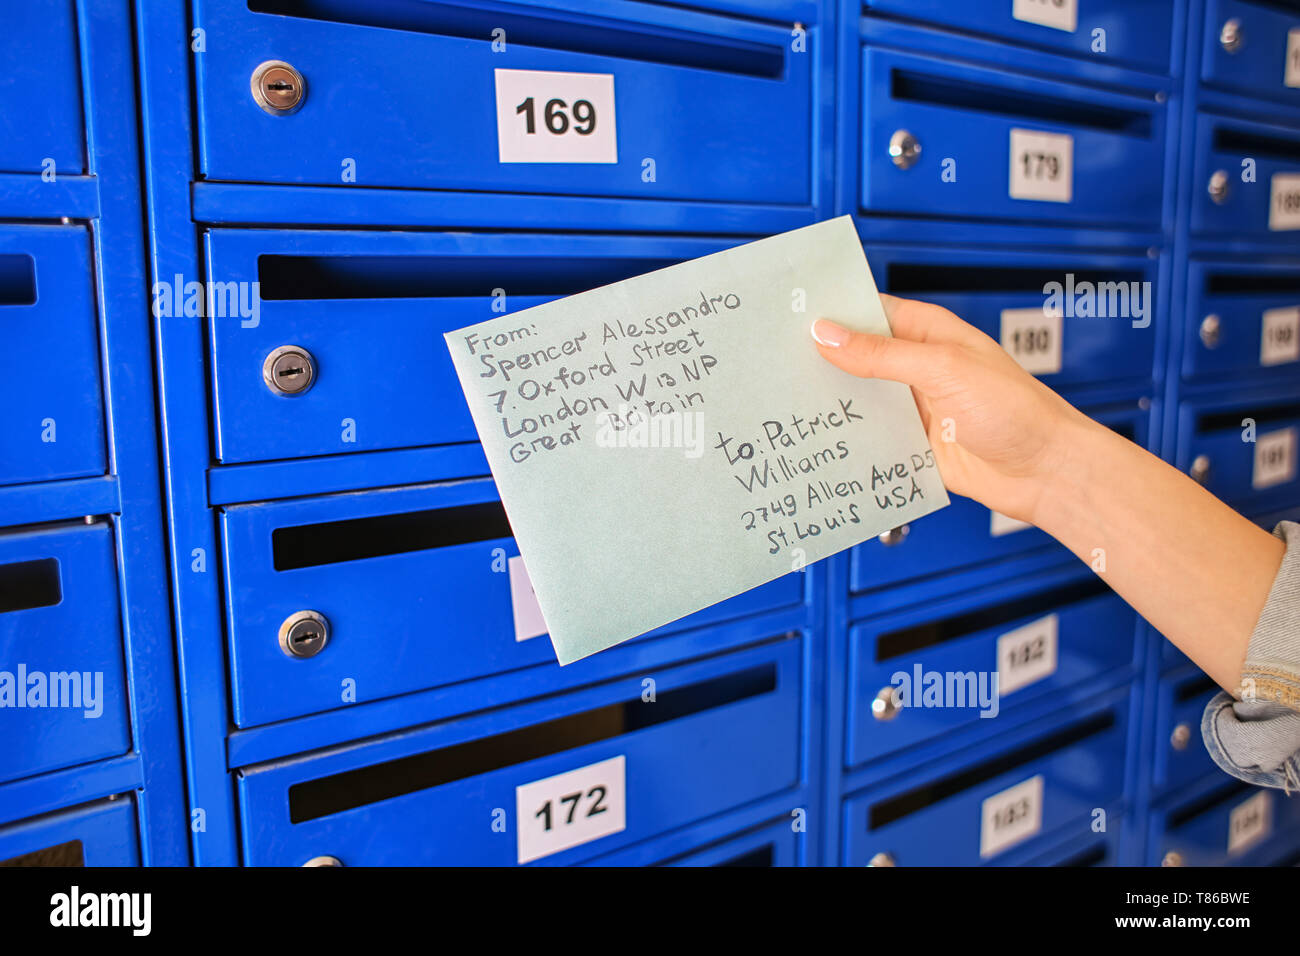 169
179
180
172
182
183
From:
Spencer Alessandro
7. Oxford Street
London W 13 NP
Great Britain
to: Patrick
Williams
2749 Allen Ave D5
St. Louis USA
alamy
Image ID: T86BWE
www.alamy.com